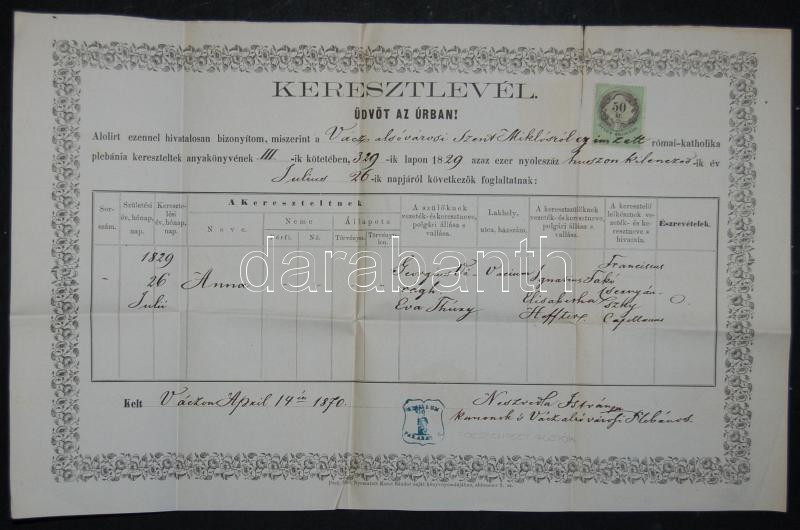 KERESZTLEVÉL.
ÜDVÖT AZ ÚRBAN!
50
Alolirt ezennel hivatalosan bizonyítom, miszerint a Vácz alsóvárosi Szent Miklósról czimzett római-katholika
plebánia kereszteltek anyakönyvének III -ik kötetében, 329 -ik lapon 1829 azaz ezer nyolcszáz huszon kilenczed -ik év
Julius 26 -ik napjáról következők foglaltatnak:
Sor-szám. Születési év, hónap, nap. Keresztelési év, hónap, nap. A Kereszteltnek A szülőknek vezeték- és keresztneve, polgári állása s vallása. Lakhely, utca, házszám. A keresztszülőknek vezeték- és keresztneve, polgári állása s vallása. A keresztelő lelkésznek vezeték- és keresztneve s hivatala. Észrevételek.
Neve. Neme Állapota
Férfi. Nő. Törvénye. Törvénytelen.
1829 Franciscus
26 Anna Georgius Vacium Ignatius Takó
Julii Elisabetha
Eva Thúry Capellanus
darabanth
Kelt Váczon April 14 én 1870. István
kanonok s Vácz alsóvárosi Plébános.